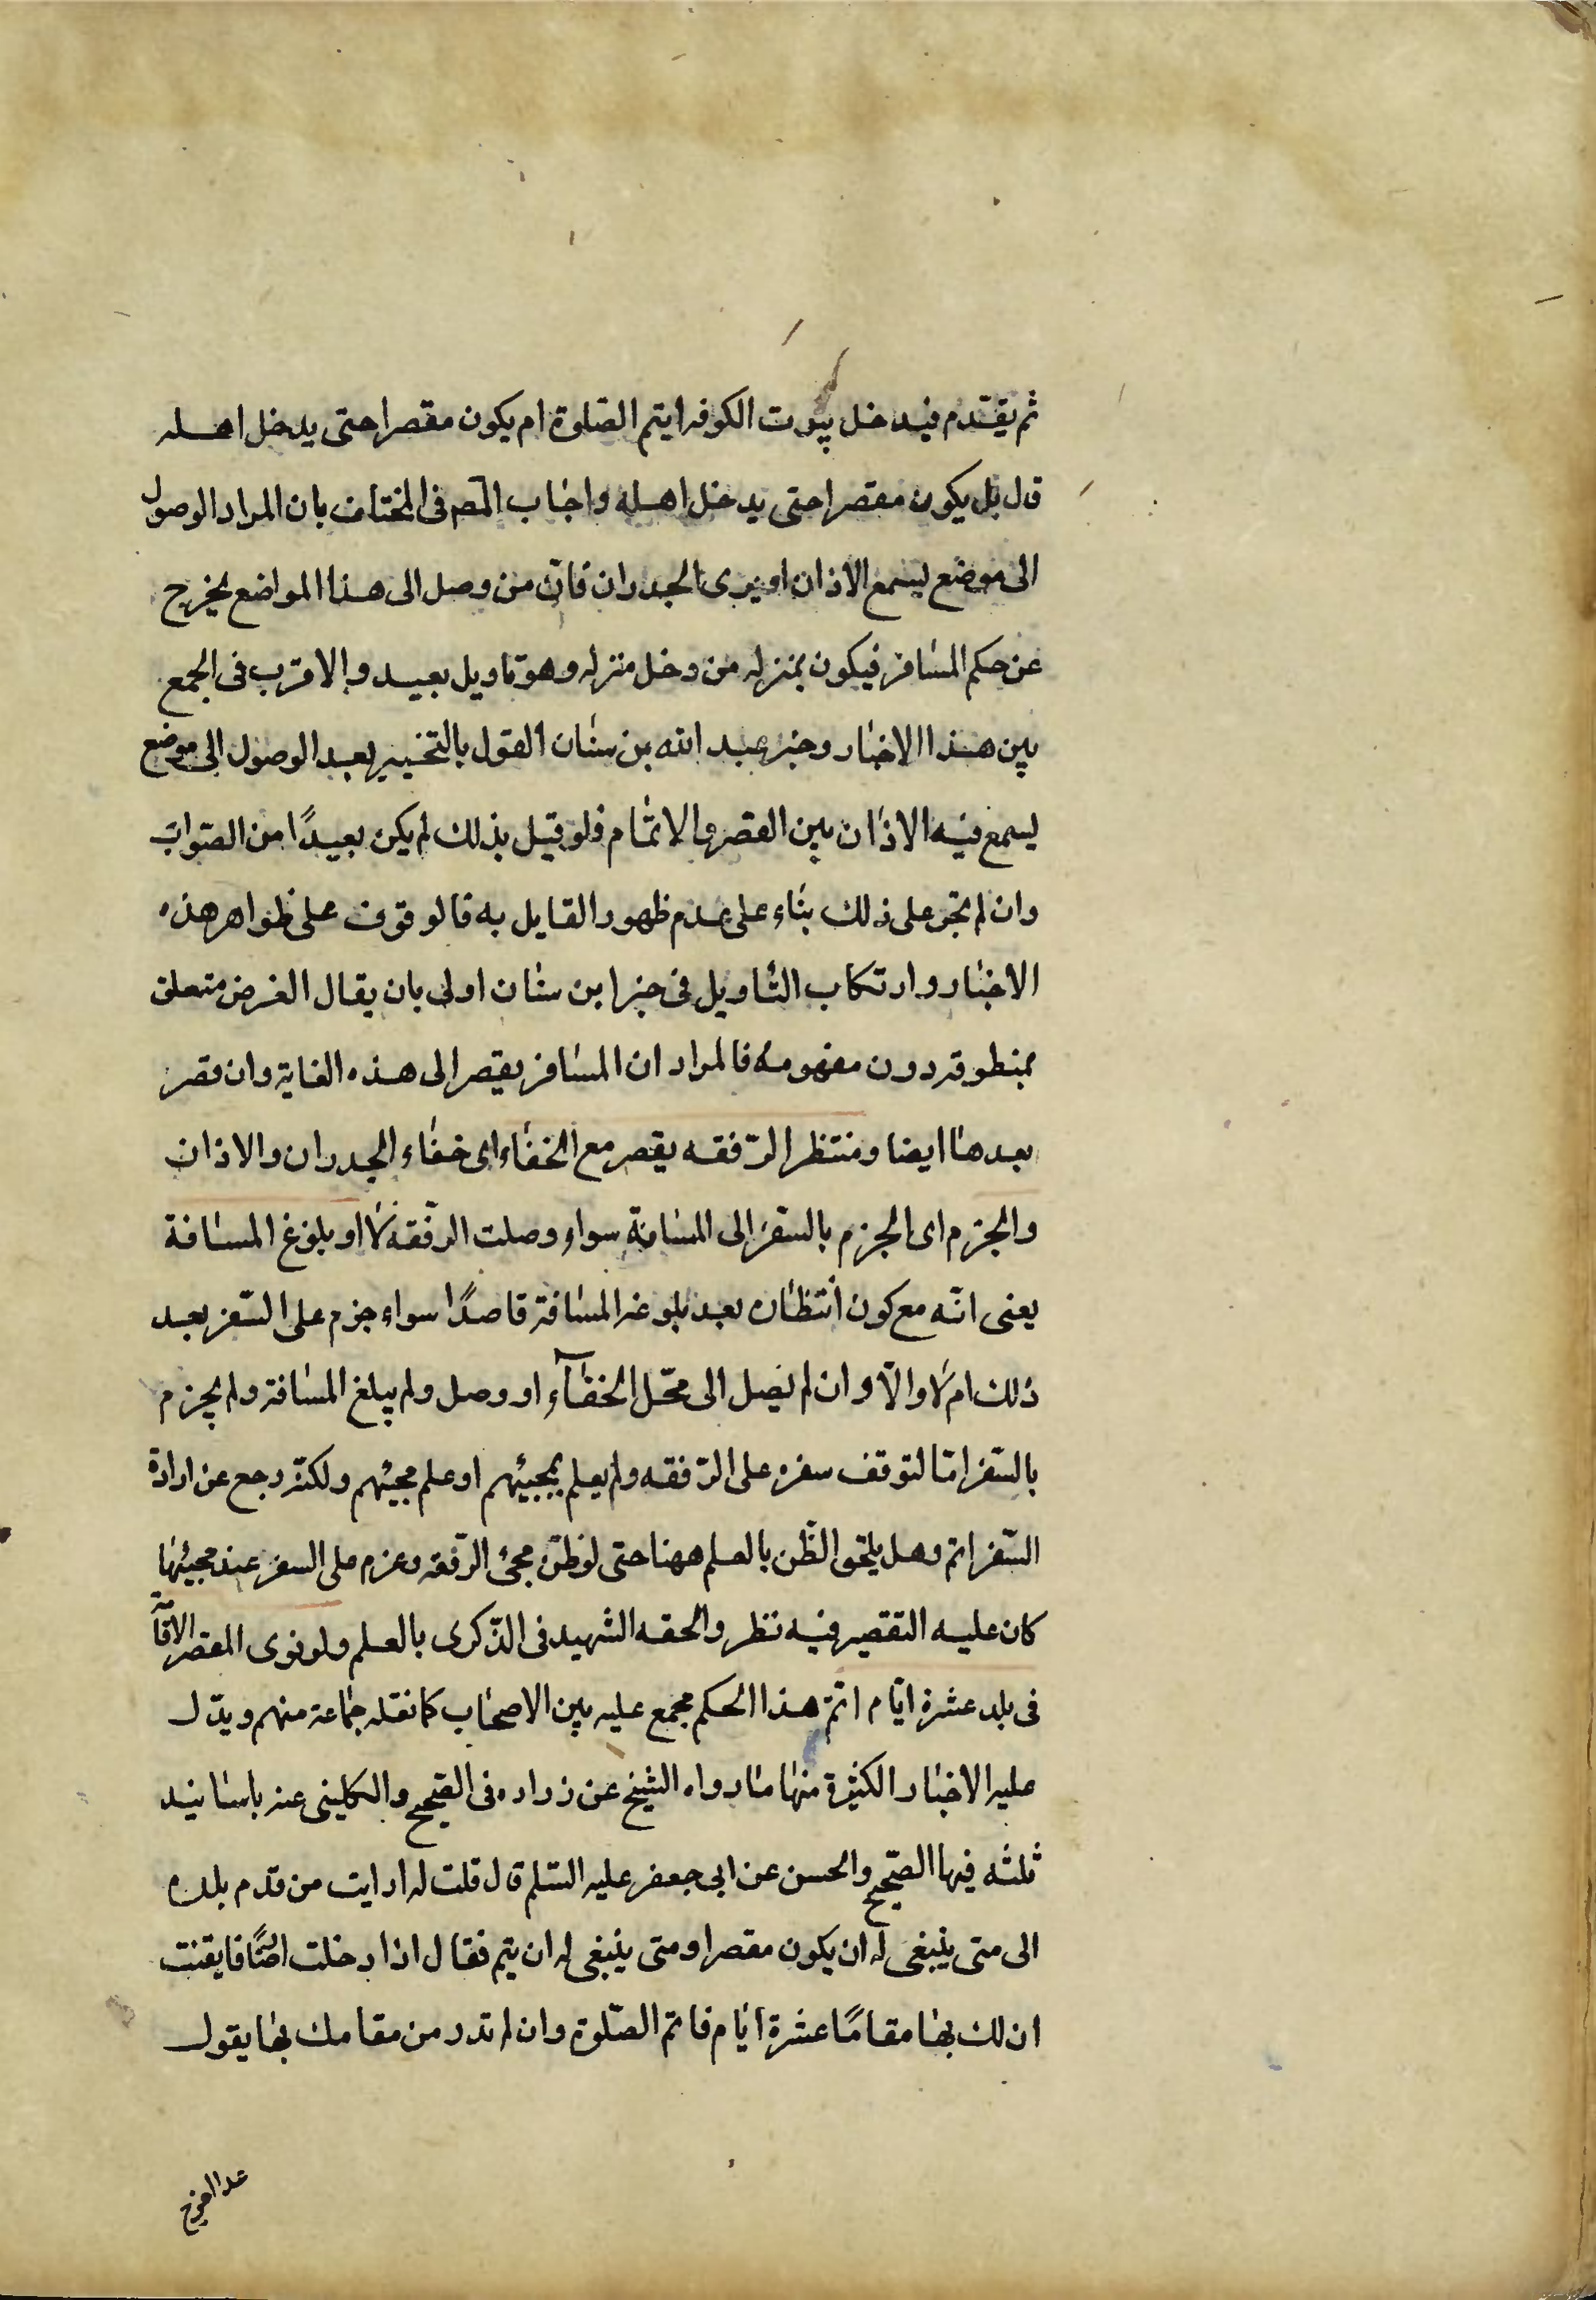 ثم يقدم فيدخل بيوت الكوفه ايتم الصلوة ام يكون مقصرا حتى يدخل اهله
قال بل يكون مقصرا حتى يدخل اهله واجاب المص فى المختلف بان المراد الوصول
الى موضع يسمع الاذان او يرى الجدران فان من وصل الى هذا المواضع يخرج
عن حكم المسافر فيكون بمنزله من دخل منزله وهو تاويل بعيد والاقرب فى الجمع
بين هذا الاخبار وخبر عبد الله بن سنان القول بالتخيير بعد الوصول الى موضع
يسمع فيه الاذان بين القصر والاتمام فلو قيل بذلك لم يكن بعيدًا من الصواب
وان لم نجر على ذلك بناء على عدم ظهور القايل به فالوقوف على ظواهر هذه
الاخبار وارتكاب التاويل فى خبر ابن سنان اولى بان يقال الغرض متعلق
بمنطوقه دون مفهومه فالمراد ان المسافر يقصر الى هذه الغاية وان قصر
بعدها ايضا ومنتظر الرّفقه يقصر مع الخفاء اى خفاء الجدران والاذان
والجزم اى الجزم بالسفر الى المسافة سواء وصلت الرّفقه لا او بلوغ المسافة
يعنى انّه مع كون انتظاره بعد بلوغه المسافة قاصدًا سواء جزم على السّفر بعد
ذلك ام لا والّا وان لم يصل الى محّل الخفآء او وصل ولم يبلغ المسافة ولم يجزم
بالسّفر امّا لتوقف سفره على الرّفقه ولم يعلم بمجيئهم او علم مجيئهم ولكنّه رجع عن ارادة
السّفر اتم وهل يلحق الظّن بالعلم ههنا حتى لو ظنّ مجئ الرّفقه وعزم على السفر عند مجيئها
كان عليه التقصير فيه نظر والحقه الشهيد فى الذّكرى بالعلم ولو نوى المقصر الاقآمة
فى بلد عشرة ايّام اتمّ هذا الحكم مجمع عليه بين الاصحاب كما نقله جماعة منهم ويدّل
عليه الاخبار الكثيرة منها ما رواه الشيخ عن زراره فى الصّحيح والكلينى عنه باسانيد
ثلثه فيها الصّحيح والحسن عن ابى جعفر عليه السّلم قال قلت له ارايت من قدم بلده
الى متى ينبغى له ان يكون مقصرا ومتى ينبغى له ان يتم فقال اذا دخلت ارضًا فايقنت
ان لك بها مقامًا عشرة ايام فاتم الصّلوة وان لم تدر من مقامك بها يقول